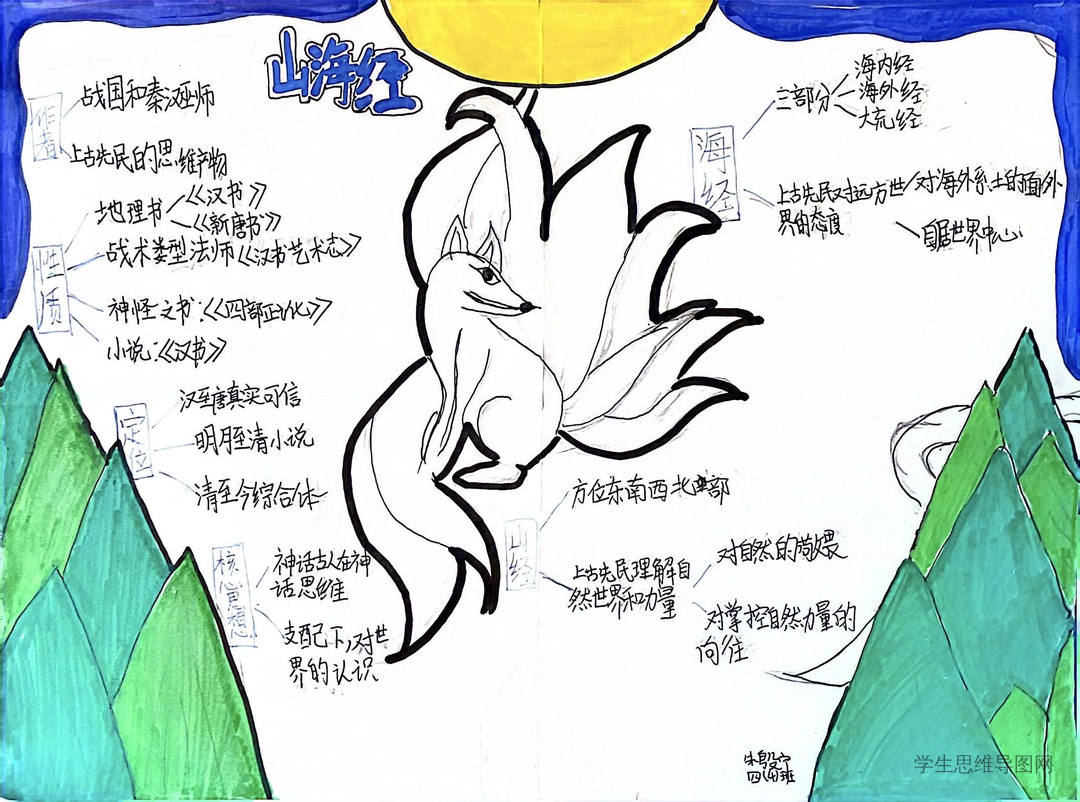 山海经
作者
战国和秦汉巫师
上古先民的思维产物
性质
地理书
《汉书》
《新唐书》
战术类型法师《汉书艺术志》
神怪之书:《四部正讹》
小说:《汉书》
定位
汉至唐真实可信
明至清小说
清至今综合体
核心思想
神话古人在神
话思维
支配下,对世
界的认识
海经
三部分
海内经
海外经
大荒经
上古先民对远方世
界的态度
对海外系土的面外
自居世界中心
山经
方位东南西北
上古先民理解自
然世界和力量
对自然的敬畏
对掌控自然力量的
向往
学生思维导图网